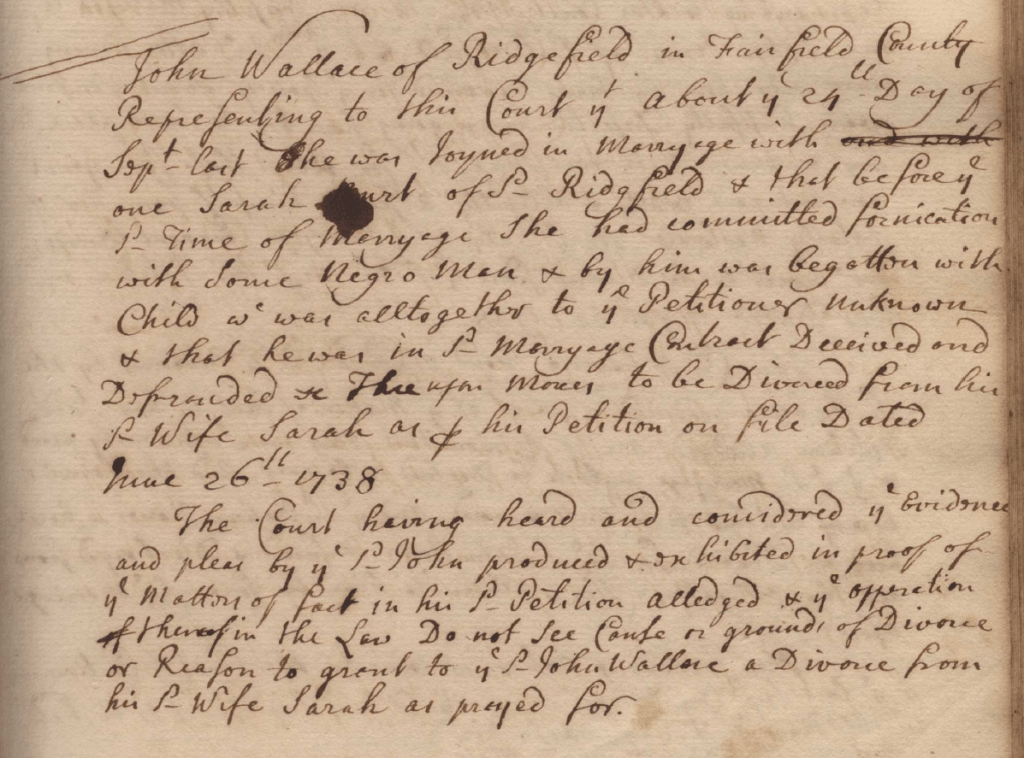 John Wallace of Ridgefield in Fairfield County
Representing to this Court yt about ye 24th Day of
Sept last he was Joyned in Marryage with and with
one Sarah of sd Ridgfield & that before ye
sd Time of Marryage She had committed fornication
with Some Negro Man & by him was begotten with
Child wc was alltogether to ye Petitioner unknown
& that he was in sd Marryage Contract Deceived and
Defrauded & Thereupon Moves to be Divorced from his
sd Wife Sarah as ꝑ his Petition on file Dated
June 26th 1738
The Court having heard and considered ye Evidence
and pleas by ye sd John produced & exhibited in proof of
ye Matters of fact in his sd Petition alledged & ye opperation
thereof in the Law Do not See Cause or grounds of Divorce
or Reason to grant to ye sd John Wallace a Divorce from
his sd Wife Sarah as prayed for.